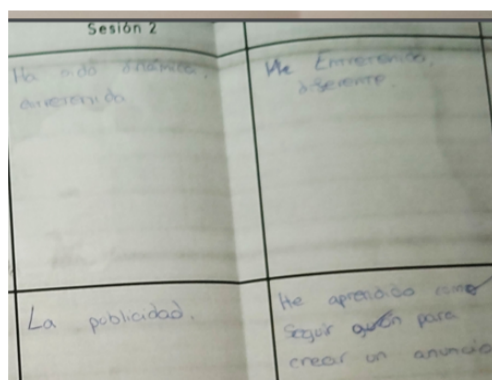 Sesión 2
Ha sido dinámica,
entretenida
He Entretenido,
diferente.
La publicidad.
He aprendido como
seguir guión para
crear un anuncio